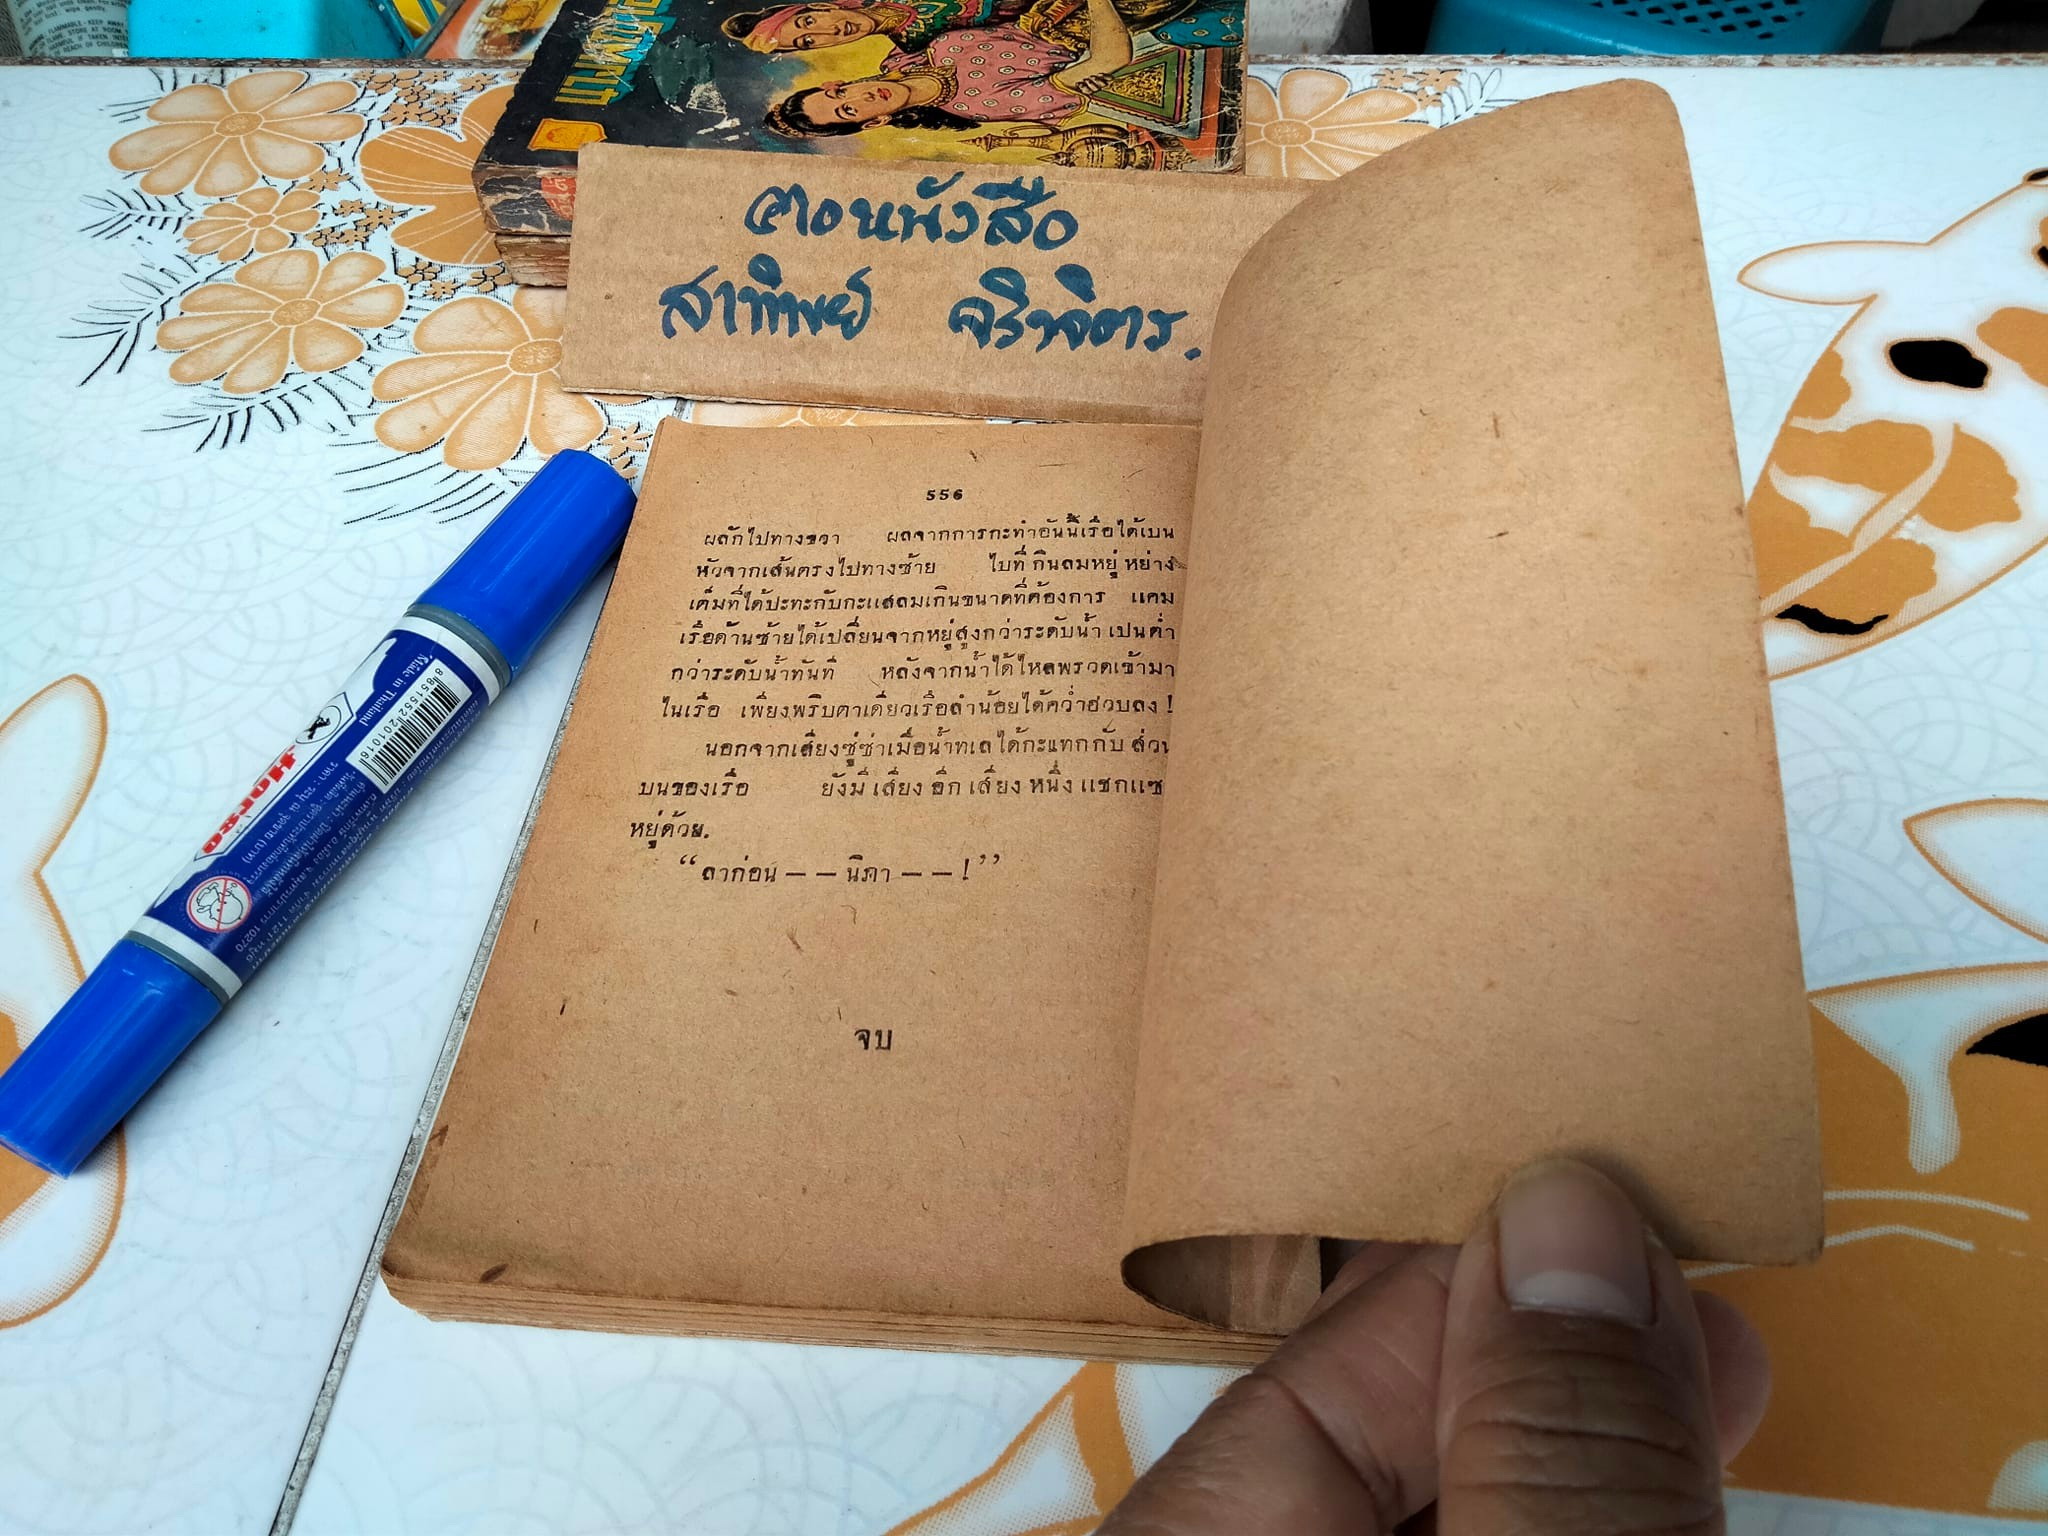 FLAMMABLE - KEEP AWAY
FLAME. STORE AT ROOM
HARMFUL IF TAKEN INTE
OF REACH OF CHILDREN
ตอหนังสือ
สาทิพย์ จริาจิตาร.
556
ผลักไปทางขวา ผลจากการกะทำอันนี้เรือได้เบน
หัวจากเส้นตรงไปทางซ้าย ไบที่ กินลมหยู่ หย่าง
เต็มที่ได้ปะทะกับกะแสลมเกินขนาดที่ต้องการ แคม
เรือด้านซ้ายได้เปลี่ยนจากหยู่สูงกว่าระดับน้ำ เปนต่ำ
กว่าระดับน้ำทันที หลังจากน้ำได้ไหลพรวดเข้ามา
ไนเรือ เพียงพริบตาเดียวเรือลำน้อยได้คว่ำฮวบลง !
นอกจากเสียงซู่ซ่าเมื่อน้ำทเลได้กะแทกกับ ส่วน
บนของเรือ ยังมี เสียง อีก เสียง หนึ่ง แซกแซง
หยู่ด้วย.
“ลาก่อน – – นิภา – – !”
จบ
Made in Thailand
8 851552 201016
Horse
10270